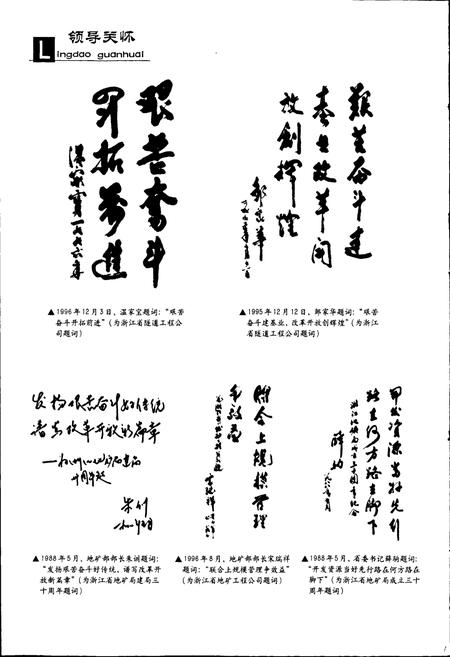 领导关怀
L
ingdao guanhuai
艰苦奋斗
开拓前进
温家宝一九九六年
艰苦奋斗建
基业改革开
放创辉煌
邹家华
▲1996年12月3日，温家宝题词：“艰苦
奋斗开拓前进”（为浙江省隧道工程公
司题词）
▲1995年12月12日，邹家华题词：“艰苦
奋斗建基业，改革开放创辉煌”（为浙江
省隧道工程公司题词）
发扬艰苦奋斗好传统
谱写改革开放新篇章
朱训
联合上规模管理
争效益
开发资源当好先行
路在何方路在脚下
薛驹
▲1988年5月，地矿部部长朱训题词：
“发扬艰苦奋斗好传统，谱写改革开
放新篇章”（为浙江省地矿局建局三
十周年题词）
▲1996年8月，地矿部部长宋瑞祥
题词：“联合上规模管理争效益”
（为浙江省地矿工程公司题词）
▲1988年5月，省委书记薛驹题词：
“开发资源当好先行路在何方路在
脚下”（为浙江省地矿局成立三十
周年题词）